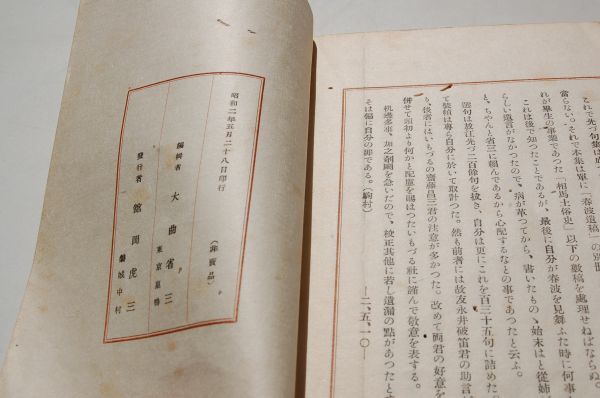 これで先づ句集は成つ
當らない。それで本集は單に「春波遺稿」の別冊
れが畢生の事業であつた「相馬土俗史」以下の數稿を處理せねばならぬ。
これは後で知つたことであるが、最後に自分が春波を見舞ふた時に何事
らしい遺言がなかつたので、病が革つてから、書いたものゝ始末はと從姉
と、ちやんと省三に賴んであるから心配するなとの事であつたと云ふ。
俳句は故江先づ二百餘句を拔き、自分は更にこれを百三十五句に詰めた
て裝幀は專ら自分に於いて取計つた。然も前者には故友永井破笛君の助言
り、後者にはいもづるの齋藤昌三君の注意が多かつた。改めて兩君の好意を
併せて頭初より何かと配慮を賜はつたいもづる社に謹んで敬意を表する。
机邊多事、加之剞劂を急いだので、校正其他に若し遺漏の點があつたとす
そは偏に自分の罪である。(駒村)
―二、五、一〇―
昭和二年五月二十八日印行
(非賣品)
編輯者 大曲省三
東京巢鴨
發行者 館岡虎三
磐城中村